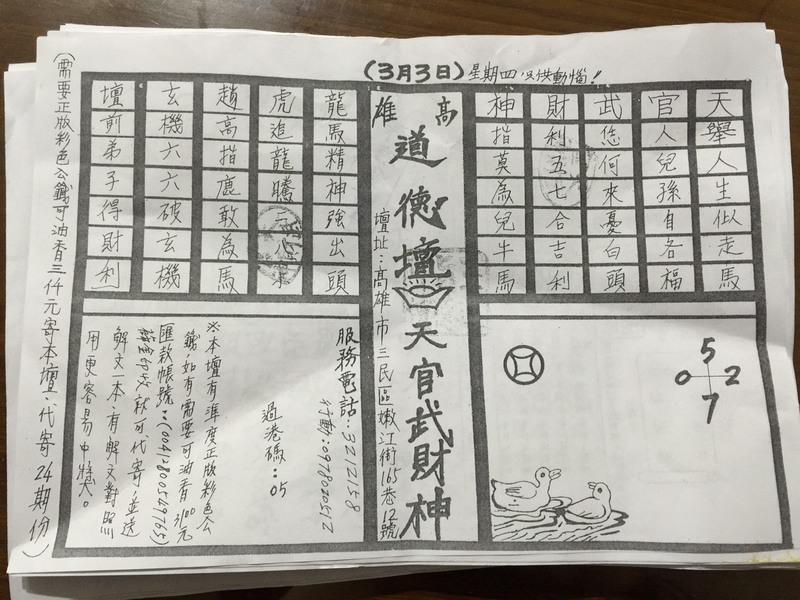 (3月3日)星期四
天舉人生似走馬
官人兒孫自各福
武您何來憂白頭
財利五七合吉利
神指莫為兒牛馬
5
0 2
7
高雄
道德壇 天官武財神
壇址:高雄市三民區嫩江街165巷12號
龍馬精神強出頭
虎追龍騰
趙高指鹿敢為馬
玄機六六破玄機
壇前弟子得財利
服務電話:3212158
行動:0978020512
過港碼:05
※本壇有準度正版彩色公
籤,如有需要可油香3100元
匯款帳號:(00412800549765)
即收就可代寄,並送
解文一本,有解文對照
用更容易中獎。
(需要正版彩色公籤可油香三仟元寄本壇,代寄24期份)